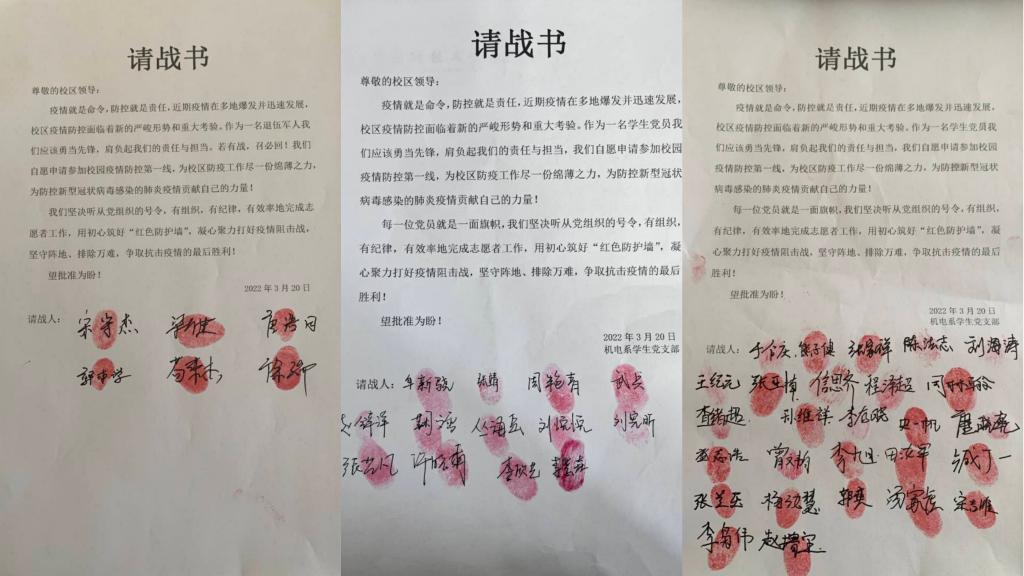 请战书
尊敬的校区领导:
疫情就是命令,防控就是责任,近期疫情在多地爆发并迅速发展,
校区疫情防控面临着新的严峻形势和重大考验。作为一名退伍军人我
们应该勇当先锋,肩负起我们的责任与担当。若有战,召必回!我们
自愿申请参加校园疫情防控第一线,为校区防疫工作尽一份绵薄之力,
为防控新型冠状病毒感染的肺炎疫情贡献自己的力量!
我们坚决听从党组织的号令,有组织,有纪律,有效率地完成志
愿者工作,用初心筑好“红色防护墙”,凝心聚力打好疫情阻击战,
坚守阵地、排除万难,争取抗击疫情的最后胜利!
望批准为盼!
2022 年 3 月 20 日
请战人:
请战书
尊敬的校区领导:
疫情就是命令,防控就是责任,近期疫情在多地爆发并迅速发展,
校区疫情防控面临着新的严峻形势和重大考验。作为一名学生党员我
们应该勇当先锋,肩负起我们的责任与担当,我们自愿申请参加校园
疫情防控第一线,为校区防疫工作尽一份绵薄之力,为防控新型冠状
病毒感染的肺炎疫情贡献自己的力量!
每一位党员就是一面旗帜,我们坚决听从党组织的号令,有组织,
有纪律,有效率地完成志愿者工作,用初心筑好“红色防护墙”,凝
心聚力打好疫情阻击战,坚守阵地、排除万难,争取抗击疫情的最后
胜利!
望批准为盼!
2022 年 3 月 20 日
机电系学生党支部
请战人:
武兵
请战书
尊敬的校区领导:
疫情就是命令,防控就是责任,近期疫情在多地爆发并迅速发展,
校区疫情防控面临着新的严峻形势和重大考验。作为一名学生党员我
们应该勇当先锋,肩负起我们的责任与担当,我们自愿申请参加校园
疫情防控第一线,为校区防疫工作尽一份绵薄之力,为防控新型冠状
病毒感染的肺炎疫情贡献自己的力量!
每一位党员就是一面旗帜,我们坚决听从党组织的号令,有组织,
有纪律,有效率地完成志愿者工作,用初心筑好“红色防护墙”,凝
心聚力打好疫情阻击战,坚守阵地、排除万难,争取抗击疫情的最后
胜利!
望批准为盼!
2022 年 3 月 20 日
机电系学生党支部
请战人: 刘海涛
王纪元 信思齐
孙维祺 史一帆
李旭 臧丁一